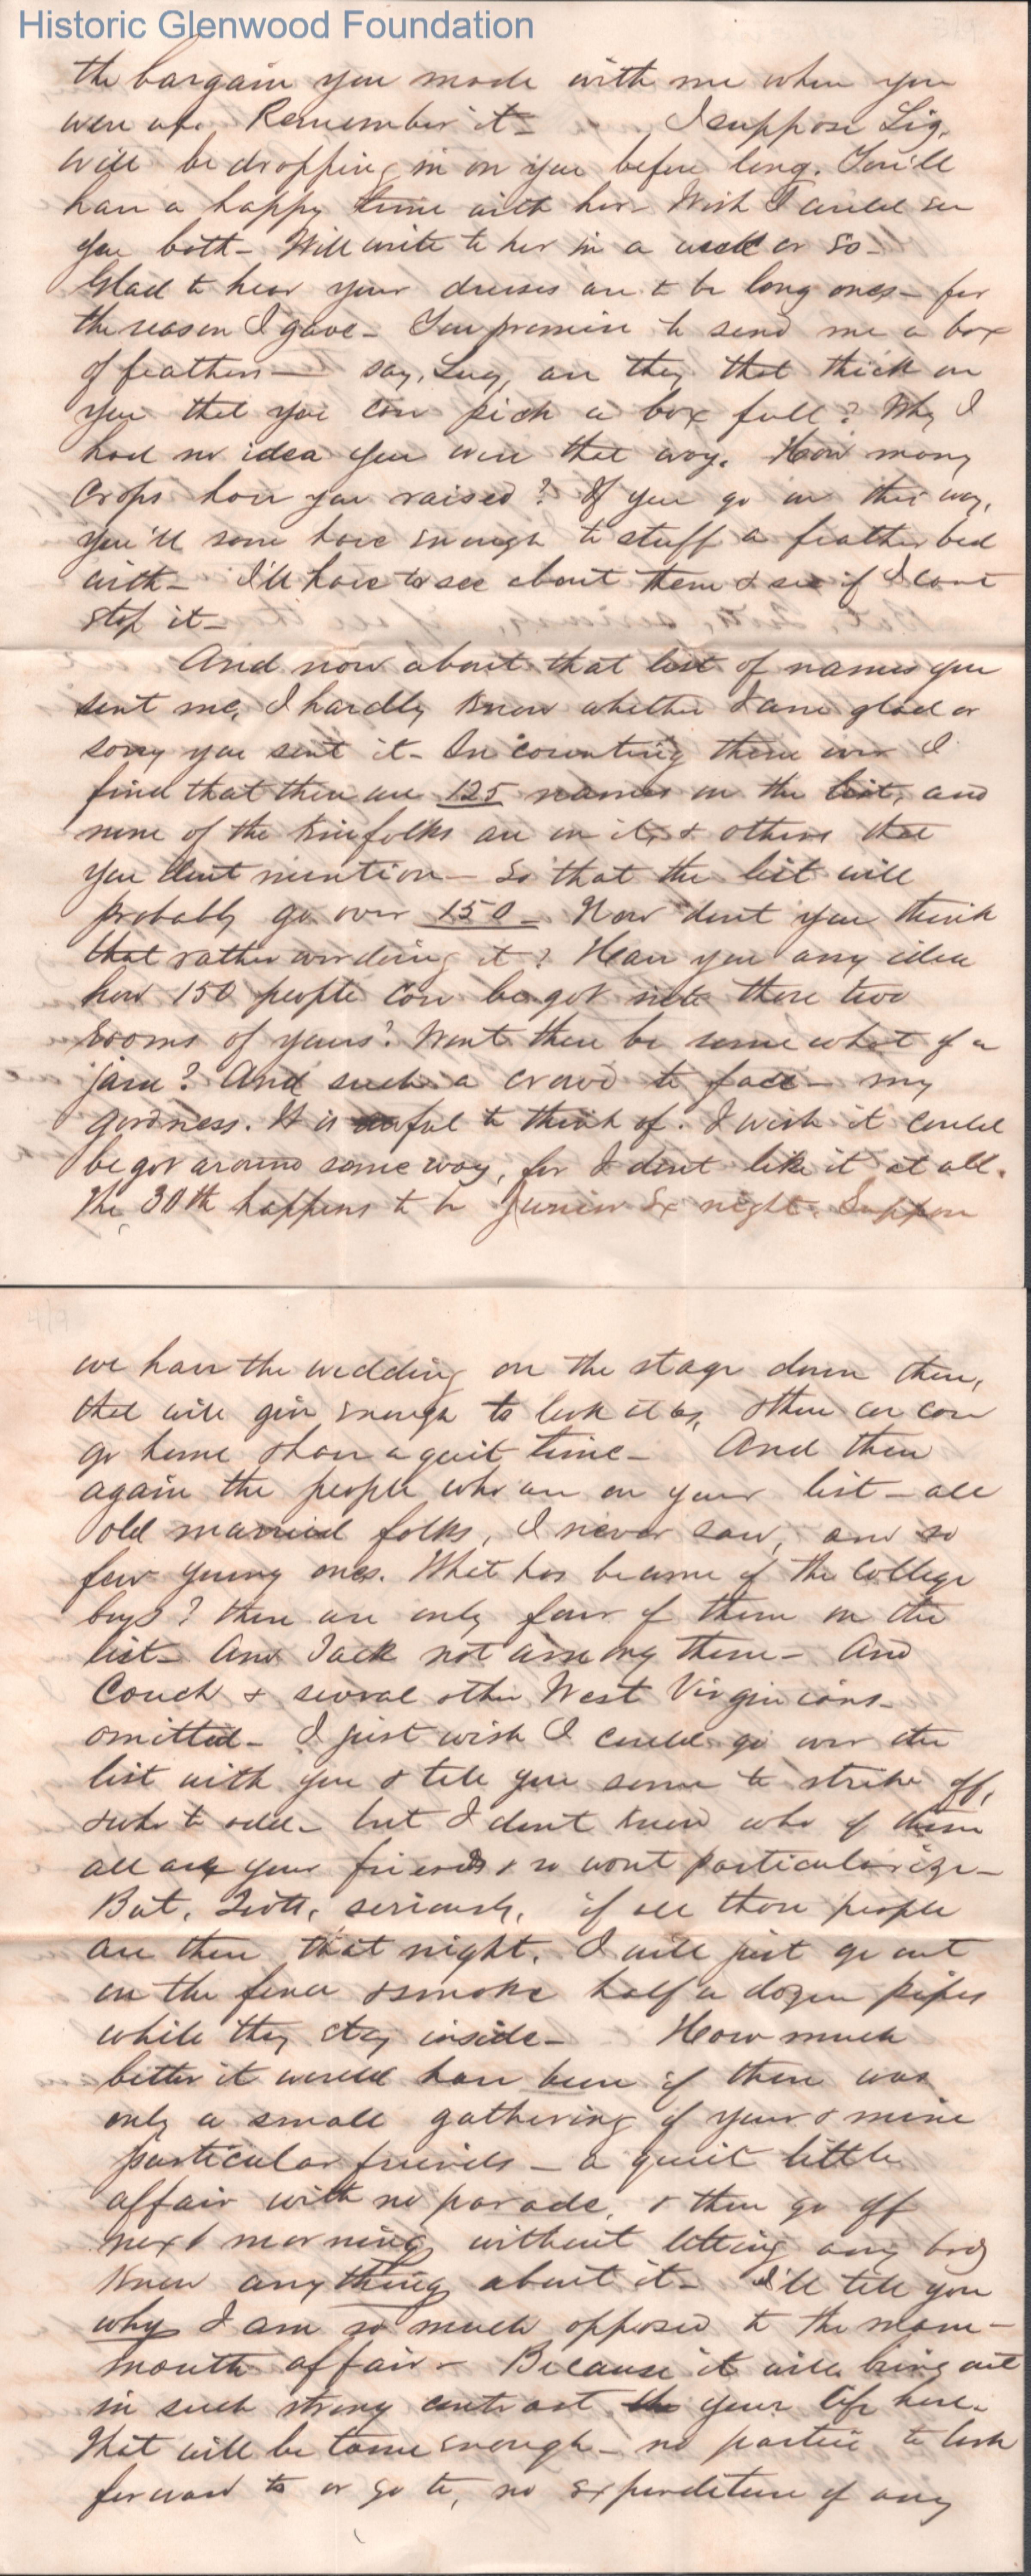 Historic Glenwood Foundation
the bargain you made with me when you
were up. Remember it— I suppose Liz,
will be dropping in on you before long. You'll
have a happy time with her— Wish I could see
you both— Will write to her in a week or so—
Glad to hear your dresses are to be long ones— for
the reason I gave— You promise to send me a box
of feathers— say, are they that thick on
you that you can pick a box full? Why I
had no idea you were that way. How many
crops have you raised? If you go on this way,
you'll soon have enough to stuff a feather bed
with— I'll have to see about them & see if I cant
stop it—
And now about that list of names you
sent me, I hardly know whether I am glad or
sorry you sent it— In counting them over I
find that there are 125 names on the list, and
none of the kinfolks are on it, & others that
you dont mention— So that the list will
probably go over 150— Now dont you think
that rather overdoing it? Have you any idea
how 150 people can be got into those two
rooms of yours? Wont there be somewhat of a
jam? And such a crowd to face— my
goodness. It is awful to think of. I wish it could
be got around some way, for I dont like it at all.
The 30th happens to be Junior Ex night. Suppose
we have the wedding on the stage down there,
that will give enough to look at us, & then we can
go home & have a quiet time— And then
again the people who are on your list— all
old married folks, I never saw, and so
few young ones. What has become of the College
boys? there are only four of them on the
list— And Jack not among them— And
Couch & several other West Virginians
omitted— I just wish I could go over the
list with you & tell you some to strike off,
& who to add— but I dont know who of them
all are your friends & so wont particularize—
But, seriously, if all those people
are there that night, I will just go out
on the fence & smoke half a dozen pipes
while they stay inside— How much
better it would have been if there was
only a small gathering of your & mine
particular friends— a quiet little
affair with no parade, & then go off
next morning without letting any body
know anything about it— I'll tell you
why I am so much opposed to the mam-
mouth affair— Because it will bring out
in such strong contrast your life here.
That will be tame enough— no parties to look
forward to or go to, no expenditure of any